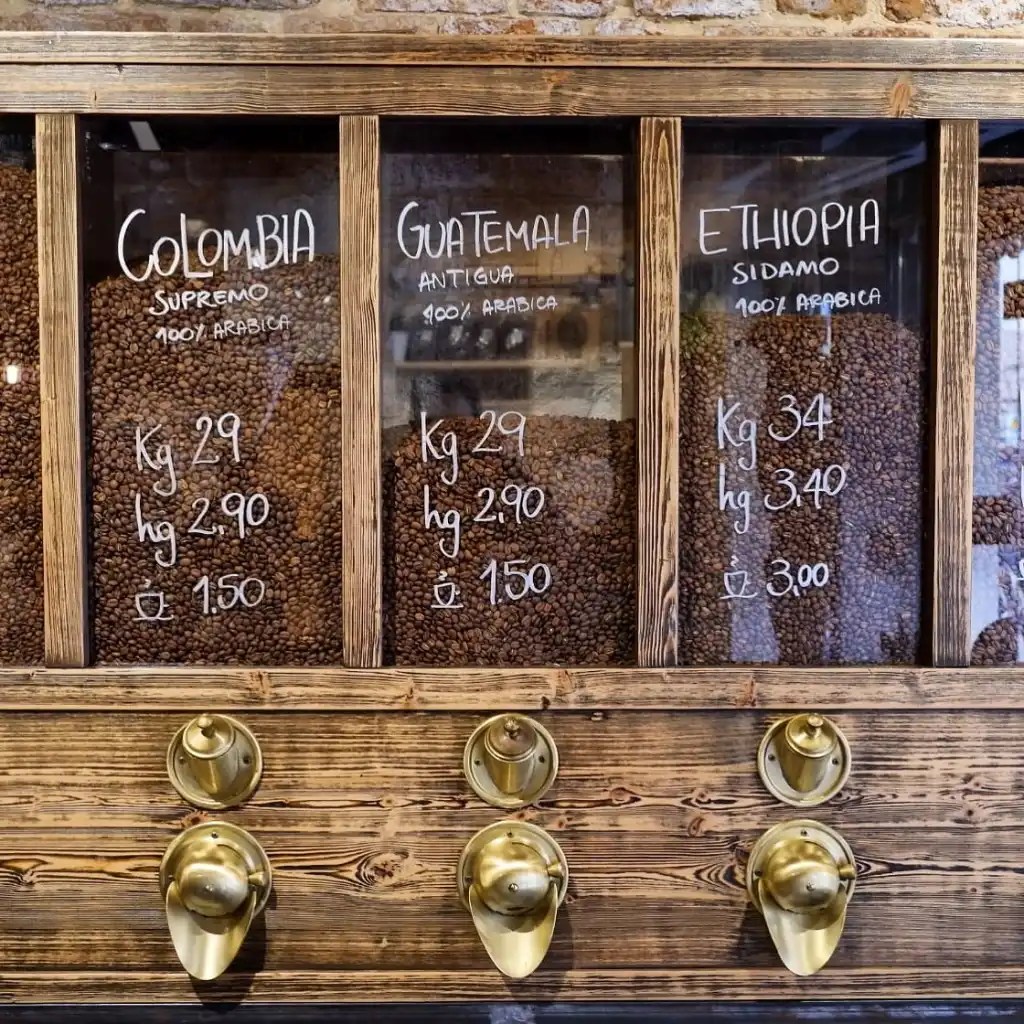 COLOMBIA
SUPREMO
100% ARABICA
Kg 29
hg 2,90
1.50
GUATEMALA
ANTIGUA
100% ARABICA
Kg 29
hg 2,90
1,50
ETHIOPIA
SIDAMO
100% ARABICA
Kg 34
hg 3,40
3,00